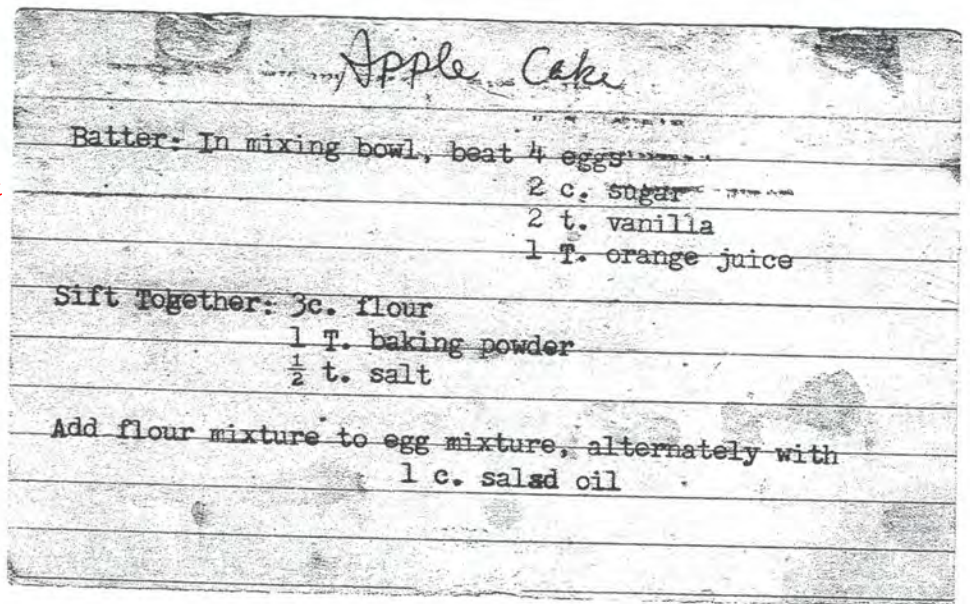 Apple Cake
Batter: In mixing bowl, beat 4 eggs
2 c. sugar
2 t. vanilla
1 T. orange juice
Sift Together: 3c. flour
1 T. baking powder
½ t. salt
Add flour mixture to egg mixture, alternately with
1 c. salad oil